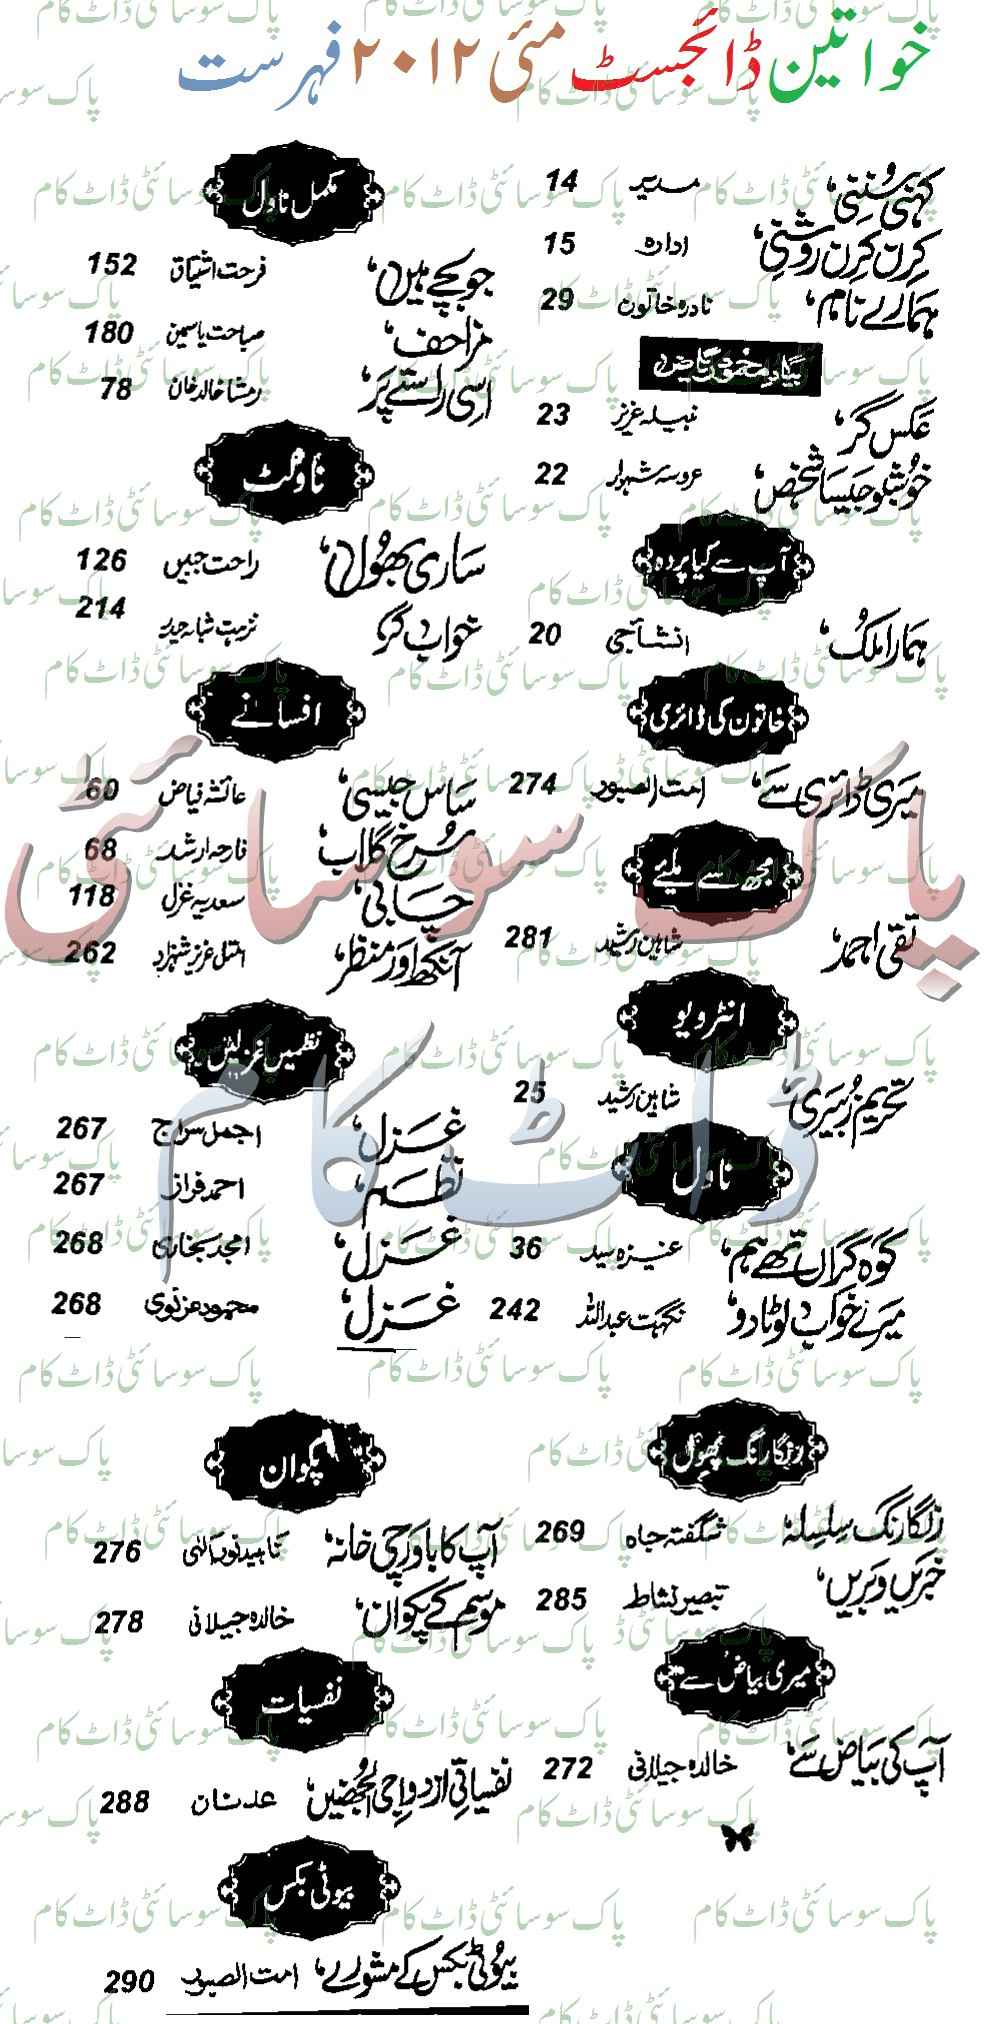 خواتین ڈائجسٹ مئی ۲۰۱۲ فہرست
کہنی سُننی، مدیر 14
کرن کرن روشنی، ادارہ 15
ہمارے نام، نادرہ خاتون 29
بیاد محمود ریاض
عکس گر، نبیلہ عزیز 23
خوشبو جیسا شخص، عروسہ شہوار 22
آپ سے کیا پردہ
ہمارا ملک، انشا جی 20
خاتون کی ڈائری
میری ڈائری سے، امت الصبور 274
مجھ سے ملیے
تقی احمد، شاہین رشید 281
انٹرویو
تحریم زبیری، شاہین رشید 25
ناول
کوہ گراں تھے ہم، عنیزہ سید 36
میرے خواب لوٹا دو، نگہت عبداللہ 242
مکمل ناول
جو بچے ہیں، فرحت اشتیاق 152
مزاحف، صباحت یاسمین 180
اسی راستے پر، رمشا خالد خان 78
ناولٹ
ساری بھول، راحت جبیں 126
خواب گر، نزہت شبانہ حیدر 214
افسانے
ساس جیسی، عائشہ فیاض 60
سرخ گلاب، فارحہ ارشد 68
چابی، سعدیہ غزل 118
آنکھ اور منظر، امتل عزیز شہزاد 262
نظمیں غزلیں
غزل، اجمل سراج 267
نظم، احمد فراز 267
غزل، امجد بخاری 268
غزل، محمود غزنوی 268
رنگا رنگ پھول
رنگا رنگ سلسلہ، شگفتہ جاہ 269
خبریں وبریں، تبصیر نشاط 285
میری بیاض سے
آپ کی بیاض سے، خالدہ جیلانی 272
پکوان
آپ کا باورچی خانہ، 276
موسم کے پکوان، خالدہ جیلانی 278
نفسیات
نفسیاتی ازدواجی الجھنیں، عدنان 288
بیوٹی بکس
بیوٹی بکس کے مشورے، امت الصبور 290
پاک سوسائٹی
ڈاٹ کام